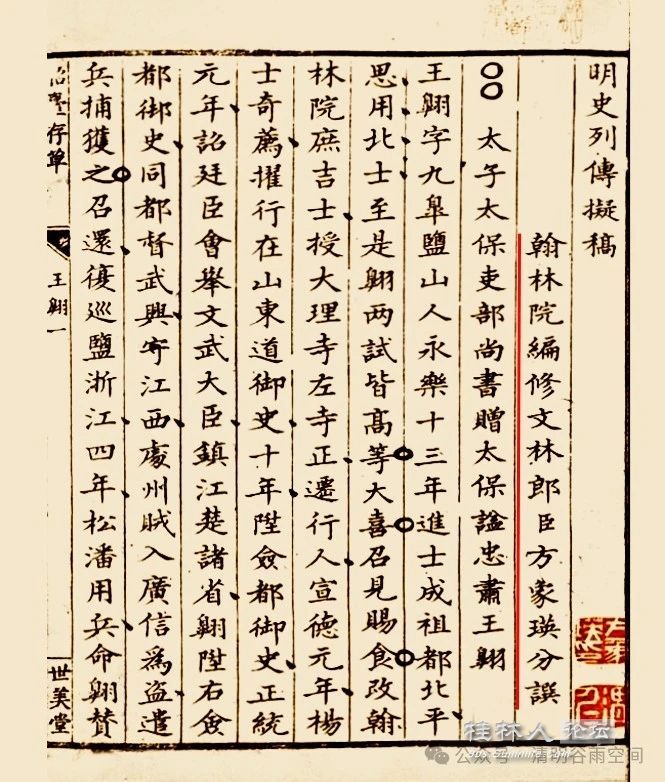 明史列傳擬稿
翰林院編修文林郎臣方象瑛分譔
〇〇太子太保吏部尚書贈太保諡忠肅王翺
王翺字九臯鹽山人永樂十三年進士成祖都北平
思用北士至是翺两試皆髙等大喜召見賜食改翰
林院庶吉士授大理寺左寺正遷行人宣德元年楊
士奇薦擢行在山東道御史十年陞僉都御史正統
元年詔廷臣會舉文武大臣鎮江楚諸省翺陞右僉
都御史同都督武興守江西處州賊入廣信爲盜遣
兵捕獲之召還復巡鹽浙江四年松潘用兵命翺贊
王翺一
世美堂
桂林人论坛
公众号·清明谷雨空间